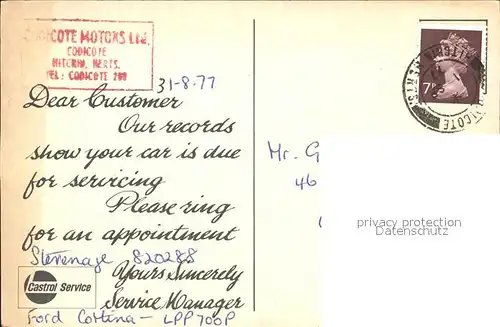 CODICOTE MOTORS Ltd.
CODICOTE
HITCHIN, HERTS.
TEL: CODICOTE
31-8-77
Dear Customer
Our records
show your car is due
for servicing
Please ring
for an appointment
Stevenage 820288
Yours Sincerely
Service Manager
Castrol Service
Ford Cortina - LPP 700P
7P
Mr. G
46
privacy protection
Datenschutz